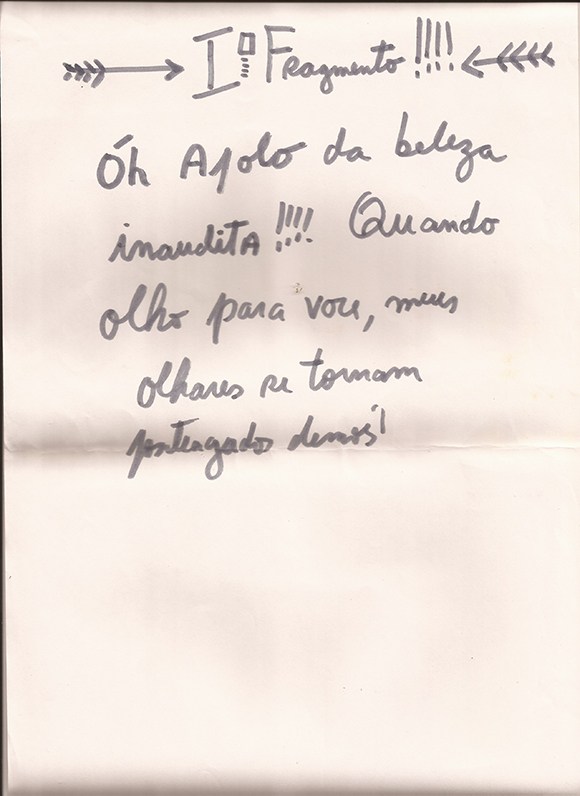 Iº Fragmento!!!!
Óh Apolo da beleza
inaudita!!!! Quando
olho para você, meus
olhares se tornam
demos!